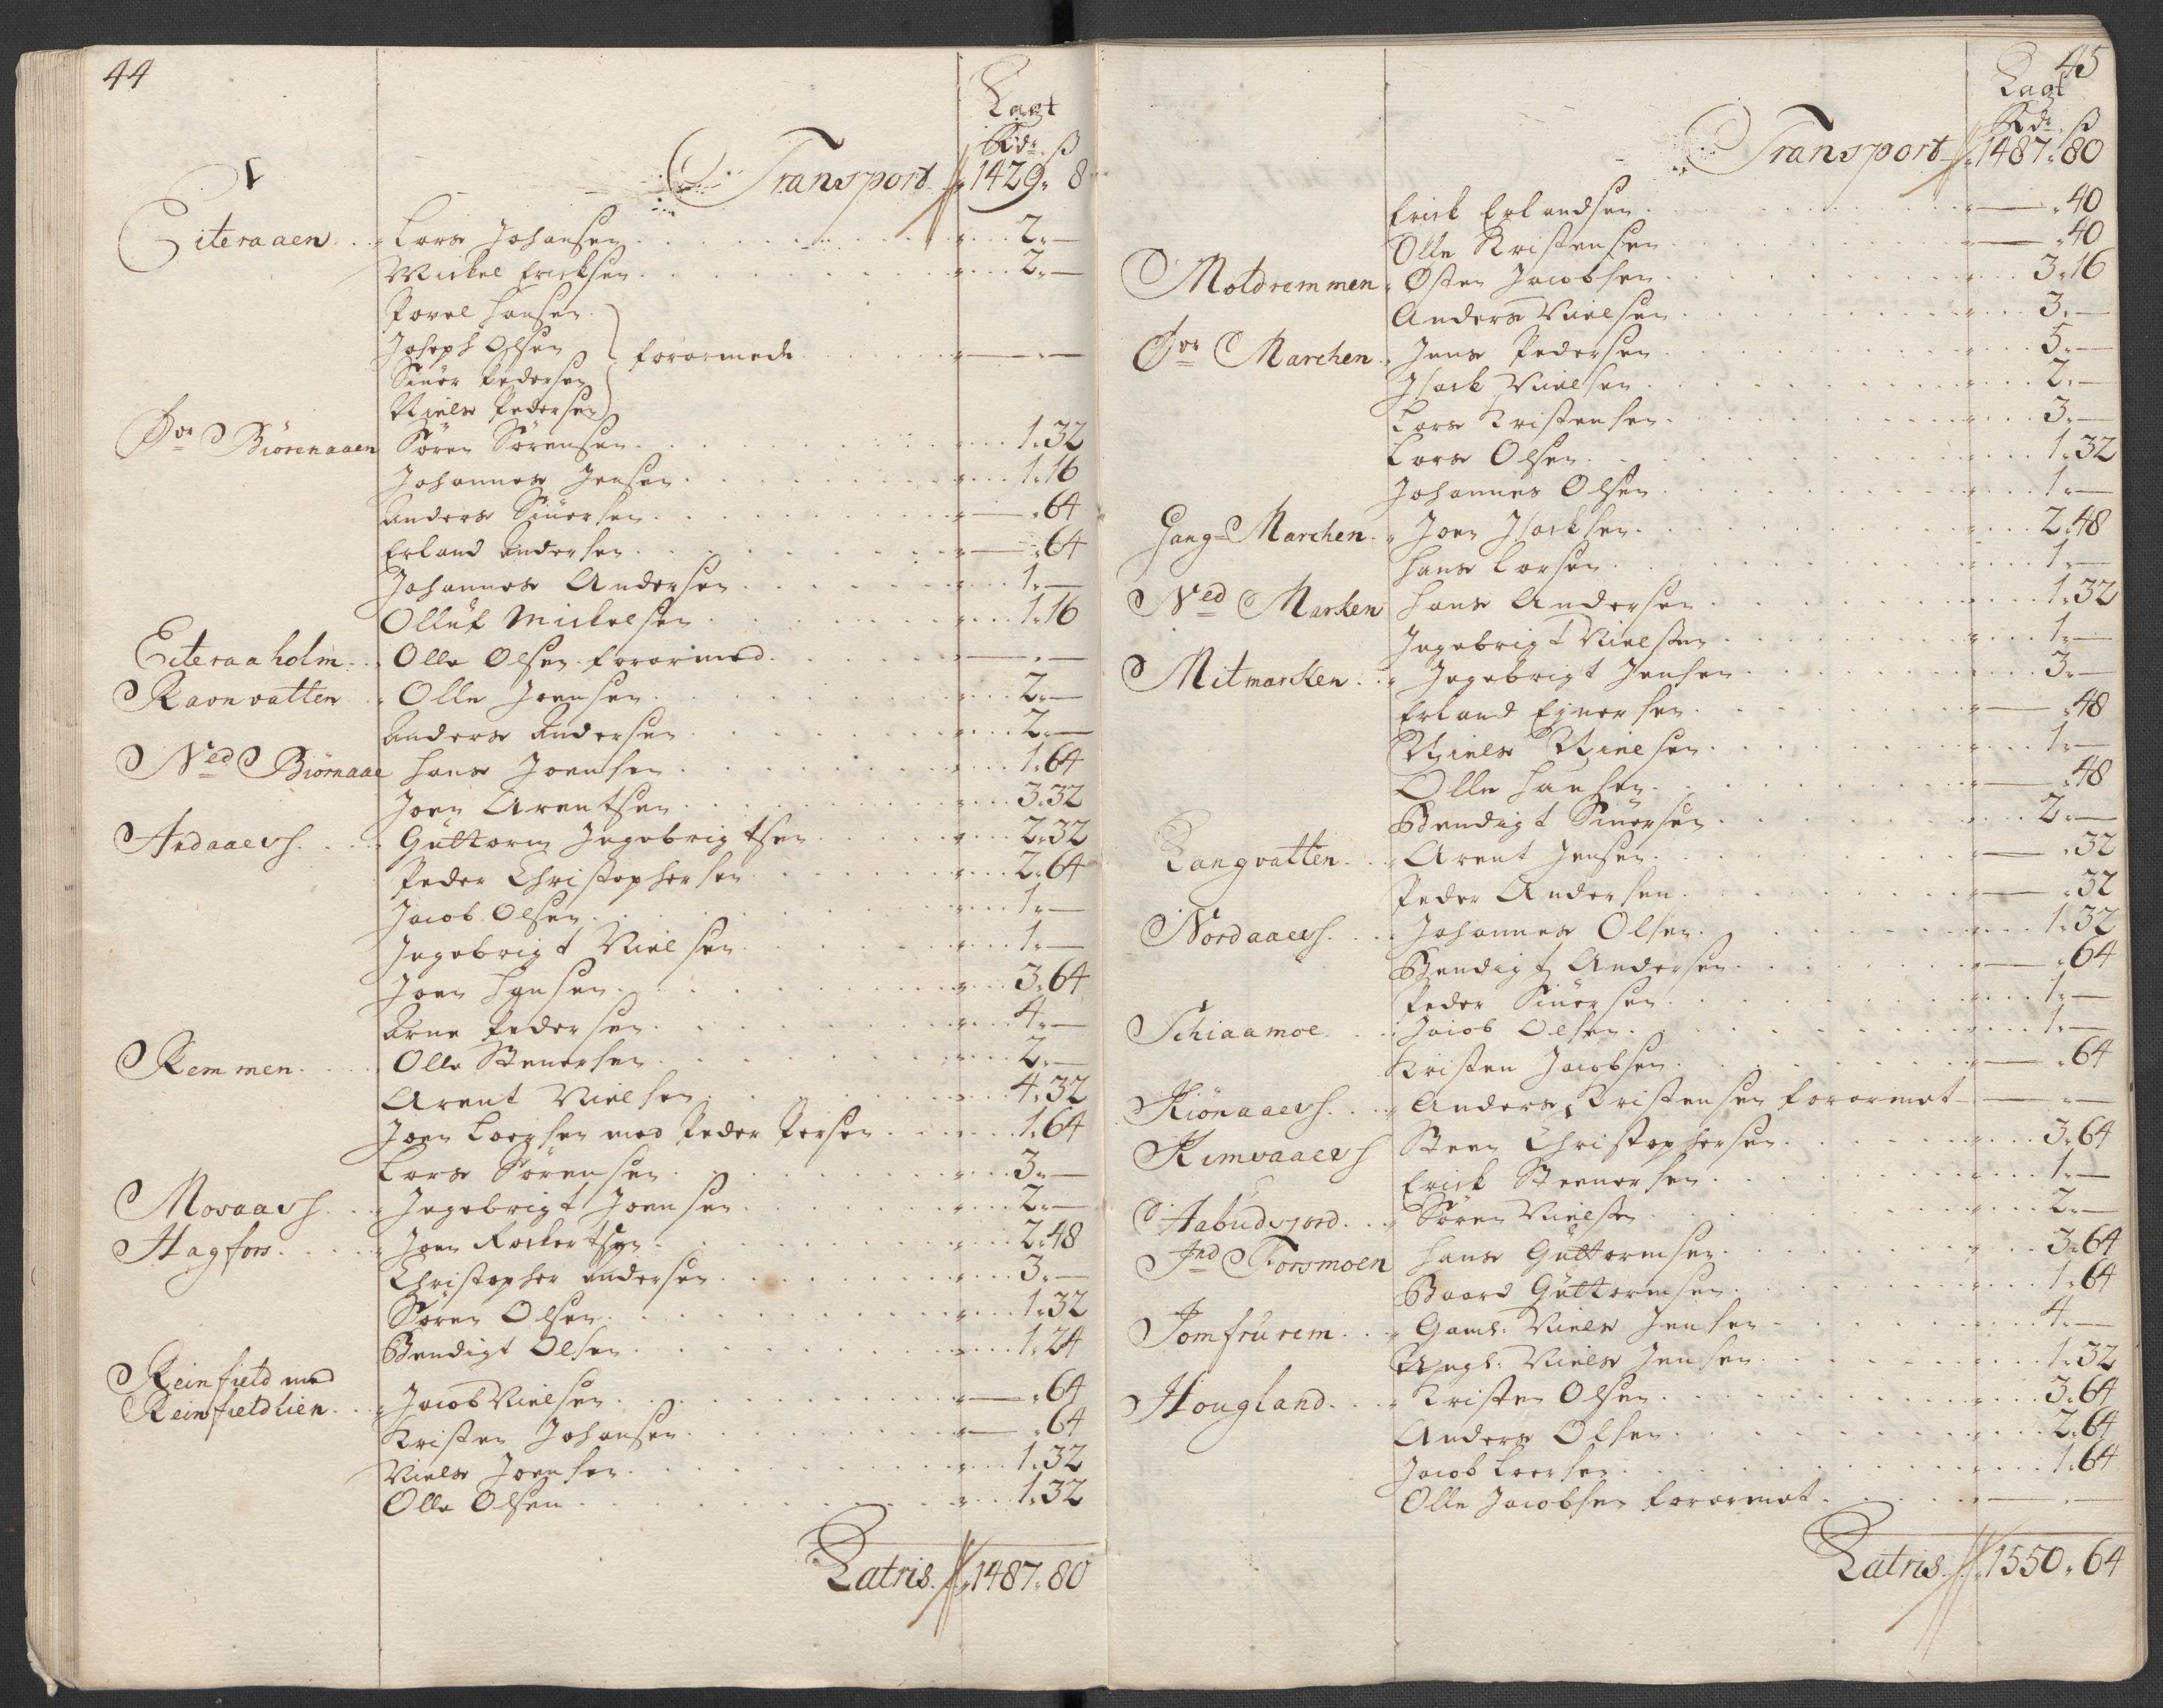 44
Lagt
Rdr. ß
Transport 1429. 8
Eiteraaen. Lars Johansen 2.—
Mickel Ericksen 2.—
Povel Hansen
Joseph Olsen forarmede —.—
Siuer Pedersen
Niels Pedersen
Øvr Biörenaaen Sören Sörensen 1.32
Johannes Jensen 1.16
Anders Siuersen —.64
Erland Andersen —.64
Johannes Andersen 1.—
Olluf Mickelsen 1.16
Eiteraaholm Olle Olsen forarmed —.—
Ravnvatten Olle Joensen 2.—
Anders Andersen 2.—
Ned Biörnaae Hans Joensen 1.64
Joen Arentsen 3.32
Andaaess Guttorm Ingebrigtsen 2.32
Peder Christophersen 2.64
Jacob Olsen 1.—
Ingebrigt Nielsen 1.—
Joen Hansen 3.64
Arne Pedersen 4.—
Remmen Olle Stenersen 2.—
Arent Nielsen 4.32
Joen Larsen med Peder Persen 1.64
Lars Sörensen 3.—
Mosaaess Ingebrigt Joensen 2.—
Hagfors Joen 2.48
Christopher Andersen 3.—
Sören Olsen 1.32
Bendigt Olsen 1.24
Reinfield med
Reinfieldlien Jacob Nielsen —.64
Kristen Johansen —.64
Niels Joensen 1.32
Olle Olsen 1.32
Latris 1487.80
45
Lagt
Rdr. ß
Transport 1487.80
Erick Erlandsen —.40
Olle Kristensen —.40
Moldremmen Østen Jacobsen 3.16
Anders Nielsen 3.—
Øvr Marchen Jens Pedersen 5.—
Isack Nielsen 2.—
Lars Kristensen 3.—
Lars Olsen 1.32
Johannes Olsen 1.—
Gang Marchen Joen Isacksen 2.48
Hans Larsen 1.—
Ned Marken Hans Andersen 1.32
Ingebrigt Nielsen 1.—
Mitmarken Ingebrigt Jensen 3.—
Erland Ejnersen —.48
Niels Nielsen 1.—
Olle Hansen —.48
Bendigt Siuersen 2.—
Langvatten Arent Jensen —.32
Peder Andersen —.32
Nordaaess Johannes Olsen 1.32
Bendigt Andersen —.64
Peder Siuersen 1.—
Schiaamoe Jacob Olsen 1.—
Kristen Jacobsen —.64
Kiönaaess Anders Kristensen forarmet —.—
Rimvaaess Steen Christophersen 3.64
Erick Steenersen 1.—
Aabudsjord Sören Nielsen 2.—
Ind Forsmoen Hans Guttormsen 3.64
Baard Guttormsen 1.64
Jomfrurem Gaml: Niels Jensen 4.—
Ungl: Niels Jensen 1.32
Hougland Kristen Olsen 3.64
Anders Olsen 2.64
Jacob Larsen 1.64
Olle Jacobsen forarmet —.—
Latris 1550.64